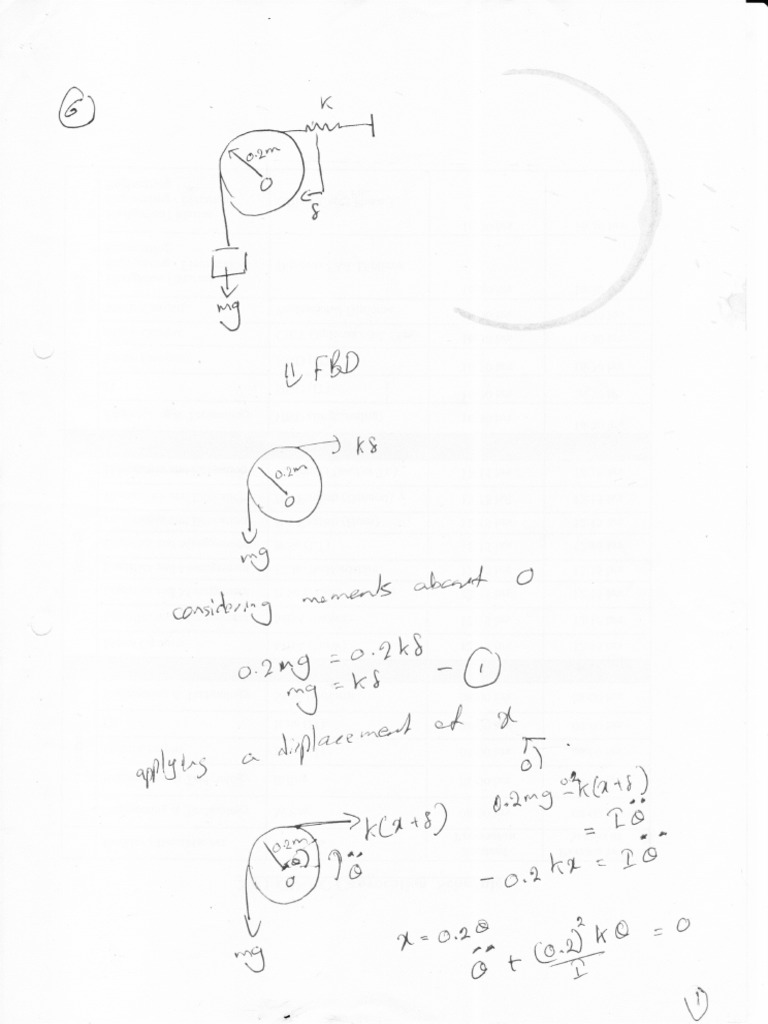 6
K
0.2m
O
δ
mg
⇓ FBD
kδ
0.2m
O
mg
considering moments about O
0.2mg = 0.2kδ
mg = kδ - ①
applying a displacement of x
O)
0.2mg - 0.2k(x+δ)
= Iθ̈
k(x+δ)
0.2m
θ
θ̈
O
- 0.2kx = Iθ̈
mg
x = 0.2θ
θ̈ + (0.2)²kθ / I = 0